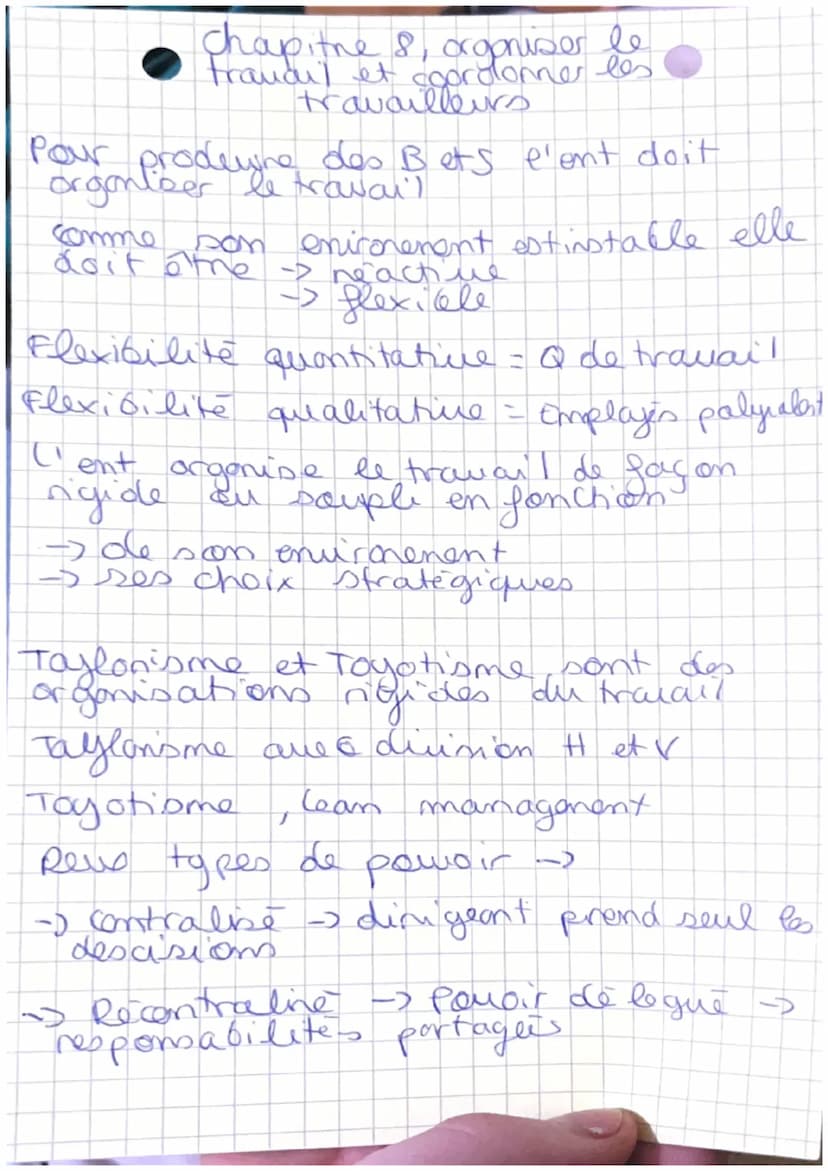 Chapitre 8, organiser le
travail et coordonner les
travailleurs
Pour produire des B et S l'ent doit
organiser le travail
comme son enironement est instable elle
doit être -> réactive
-> flexible
Flexibilité quantitative = Q de travail
Flexibilité qualitative = Employés polyvalent
L'ent organise le travail de façon
rigide ou souple en fonction
-> de son environement
-> ses choix stratégiques
Taylorisme et Toyotisme sont des
organisations rigides du travail
Taylorisme avec division H et V
Toyotisme, lean management
Deux types de pouvoir ->
-> centralisé -> dirigeant prend seul les
descisions
-> Décentralisé -> Pouvoir délégué ->
responsabilités partagés